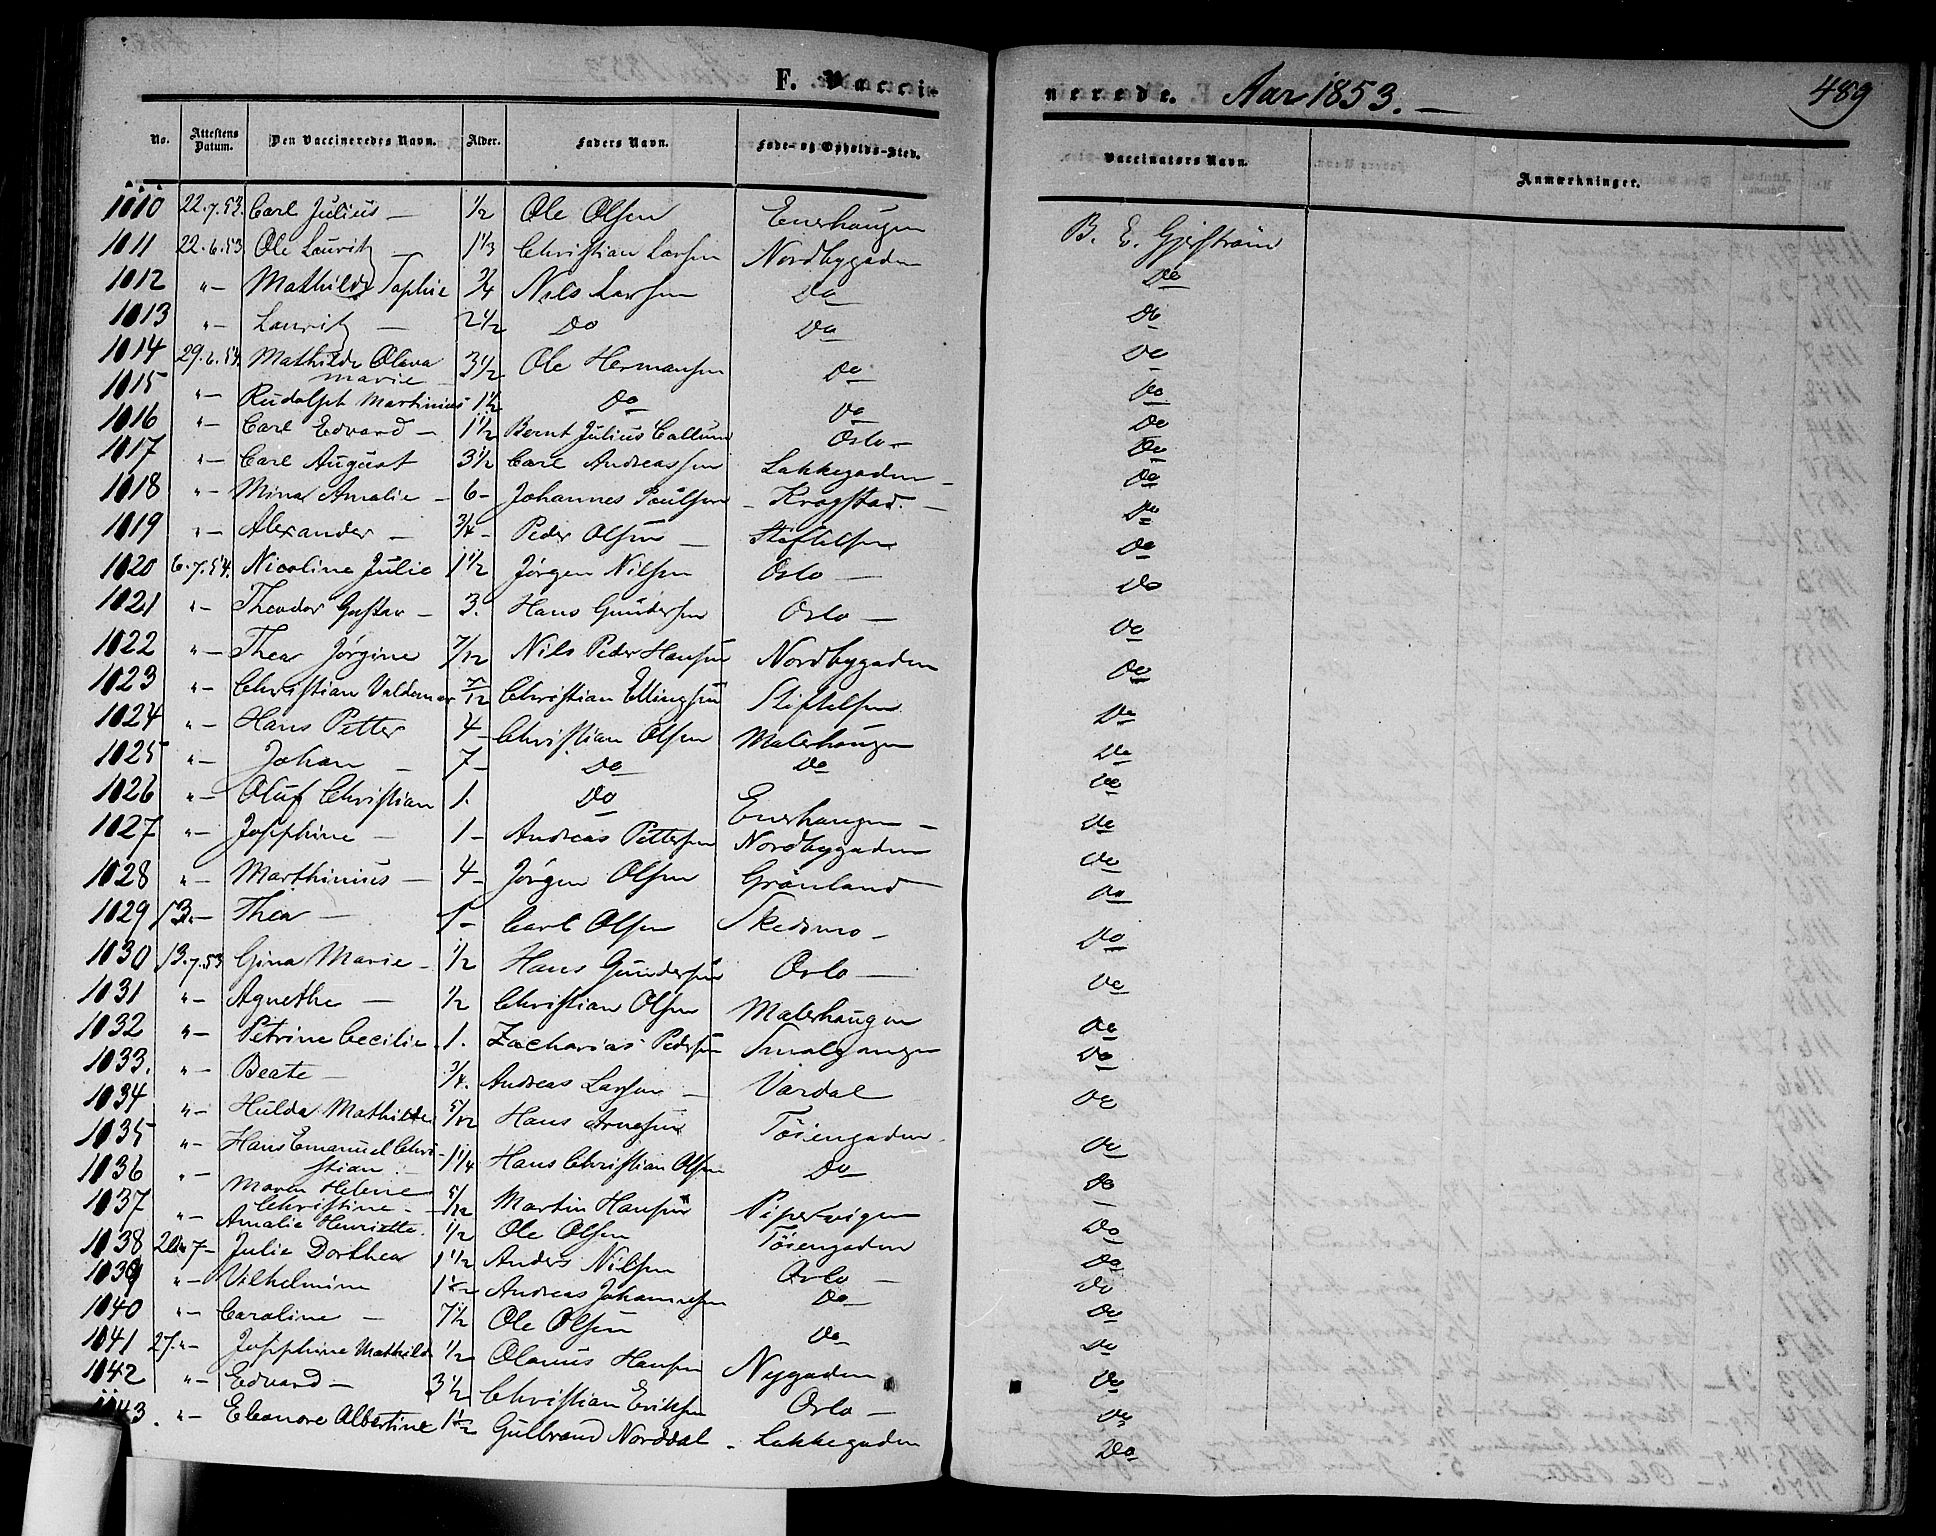 F. Vacci-
nerede. Aar 1853.
489
No. Attestens Datum. Den Vaccineredes Navn. Alder. Faders Navn. Føde- og Opholds-Sted. Vaccinatørs Navn. Anmærkninger.
1010 22.7.53. Carl Julius — 1/2 Ole Olsen Enerhaugen B. E. Gjerström
1011 22.6.53 Ole Lauritz — 1 1/3 Christian Larsen Nordbygaden Do
1012 "— Mathilde Sophie 3/4 Nils Larsen Do Do
1013 "— Lauritz — 2 1/2 Do Do Do
1014 29.6.53. Mathilde Olava Marie — 3 1/2 Ole Hermansen Do Do
1015 "— Rudolph Martinius 1 1/2 Do Do Do
1016 "— Carl Edvard — 1 1/2 Bernt Julius Callum Oslo — Do
1017 "— Carl August 3 1/2 Carl Andreassen Lakkegaden — Do
1018 "— Mina Amalie — 6 — Johannes Poulsen — Krogstad. — Do
1019 "— Alexander — 3/4 — Peder Olsen — Stiftelsen Do
1020 6.7.53. Nicoline Julie 1 1/2 Jörgen Nilsen Oslo — Do
1021 "— Theodor Gustav — 3. Hans Gundersen Oslo — Do
1022 "— Thea Jörgine 7/12 Nils Peder Hansen Nordbygaden Do
1023 "— Christian Valdemar 7/12 Christian Ellingsen Stiftelsen Do
1024 "— Hans Petter 4 — Christian Olsen Malerhaugen Do
1025 "— Johan — 7 — Do Do Do
1026 "— Oluf Christian 1. Do Enerhaugen — Do
1027 "— Josephine — 1 — Andreas Pettersen Nordbygaden Do
1028 "— Marthinius — 4 — Jörgen Olsen Grönland Do
1029 13.— Thea — 1 — Carl Olsen Skedsmo — Do
1030 13.7.53 Gina Marie — 1/2 Hans Gundersen Oslo — Do
1031 "— Agnethe — 1/2 Christian Olsen Malerhaugen Do
1032 "— Petrine Cecilie. 1. Zacharias Pedersen Smalgangen Do
1033. "— Beate — 3/4. Andreas Larsen — Vardal Do
1034 "— Hulda Mathilde 5/12 Hans Arnesen Töiengaden. Do
1035 "— Hans Emanuel Christian — 1 1/4 Hans Christian Olsen Do Do
1036 "— Maren Helene Christine — 5/12 Martin Hansen Pipervigen Do
1037 "— Amalie Henriette. 1/2 Ole Olsen Töiengaden Do
1038 20.7— Julie Dorthea 1 1/2 Anders Nilsen Oslo — Do
1039 "— Vilhelmine 1 1/2 Andreas Johannesen Do — Do
1040 "— Caroline — 7 1/2 Ole Olsen Do — Do
1041 27."— Josephine Mathilde 1/2 Olaus Hansen Nygaden Do
1042 "— Edvard — 3 1/2 Christian Eriksen Oslo — Do
1043. "— Eleonore Albertine 1 1/2 Gulbrand Norddal — Lakkegaden Do
Do